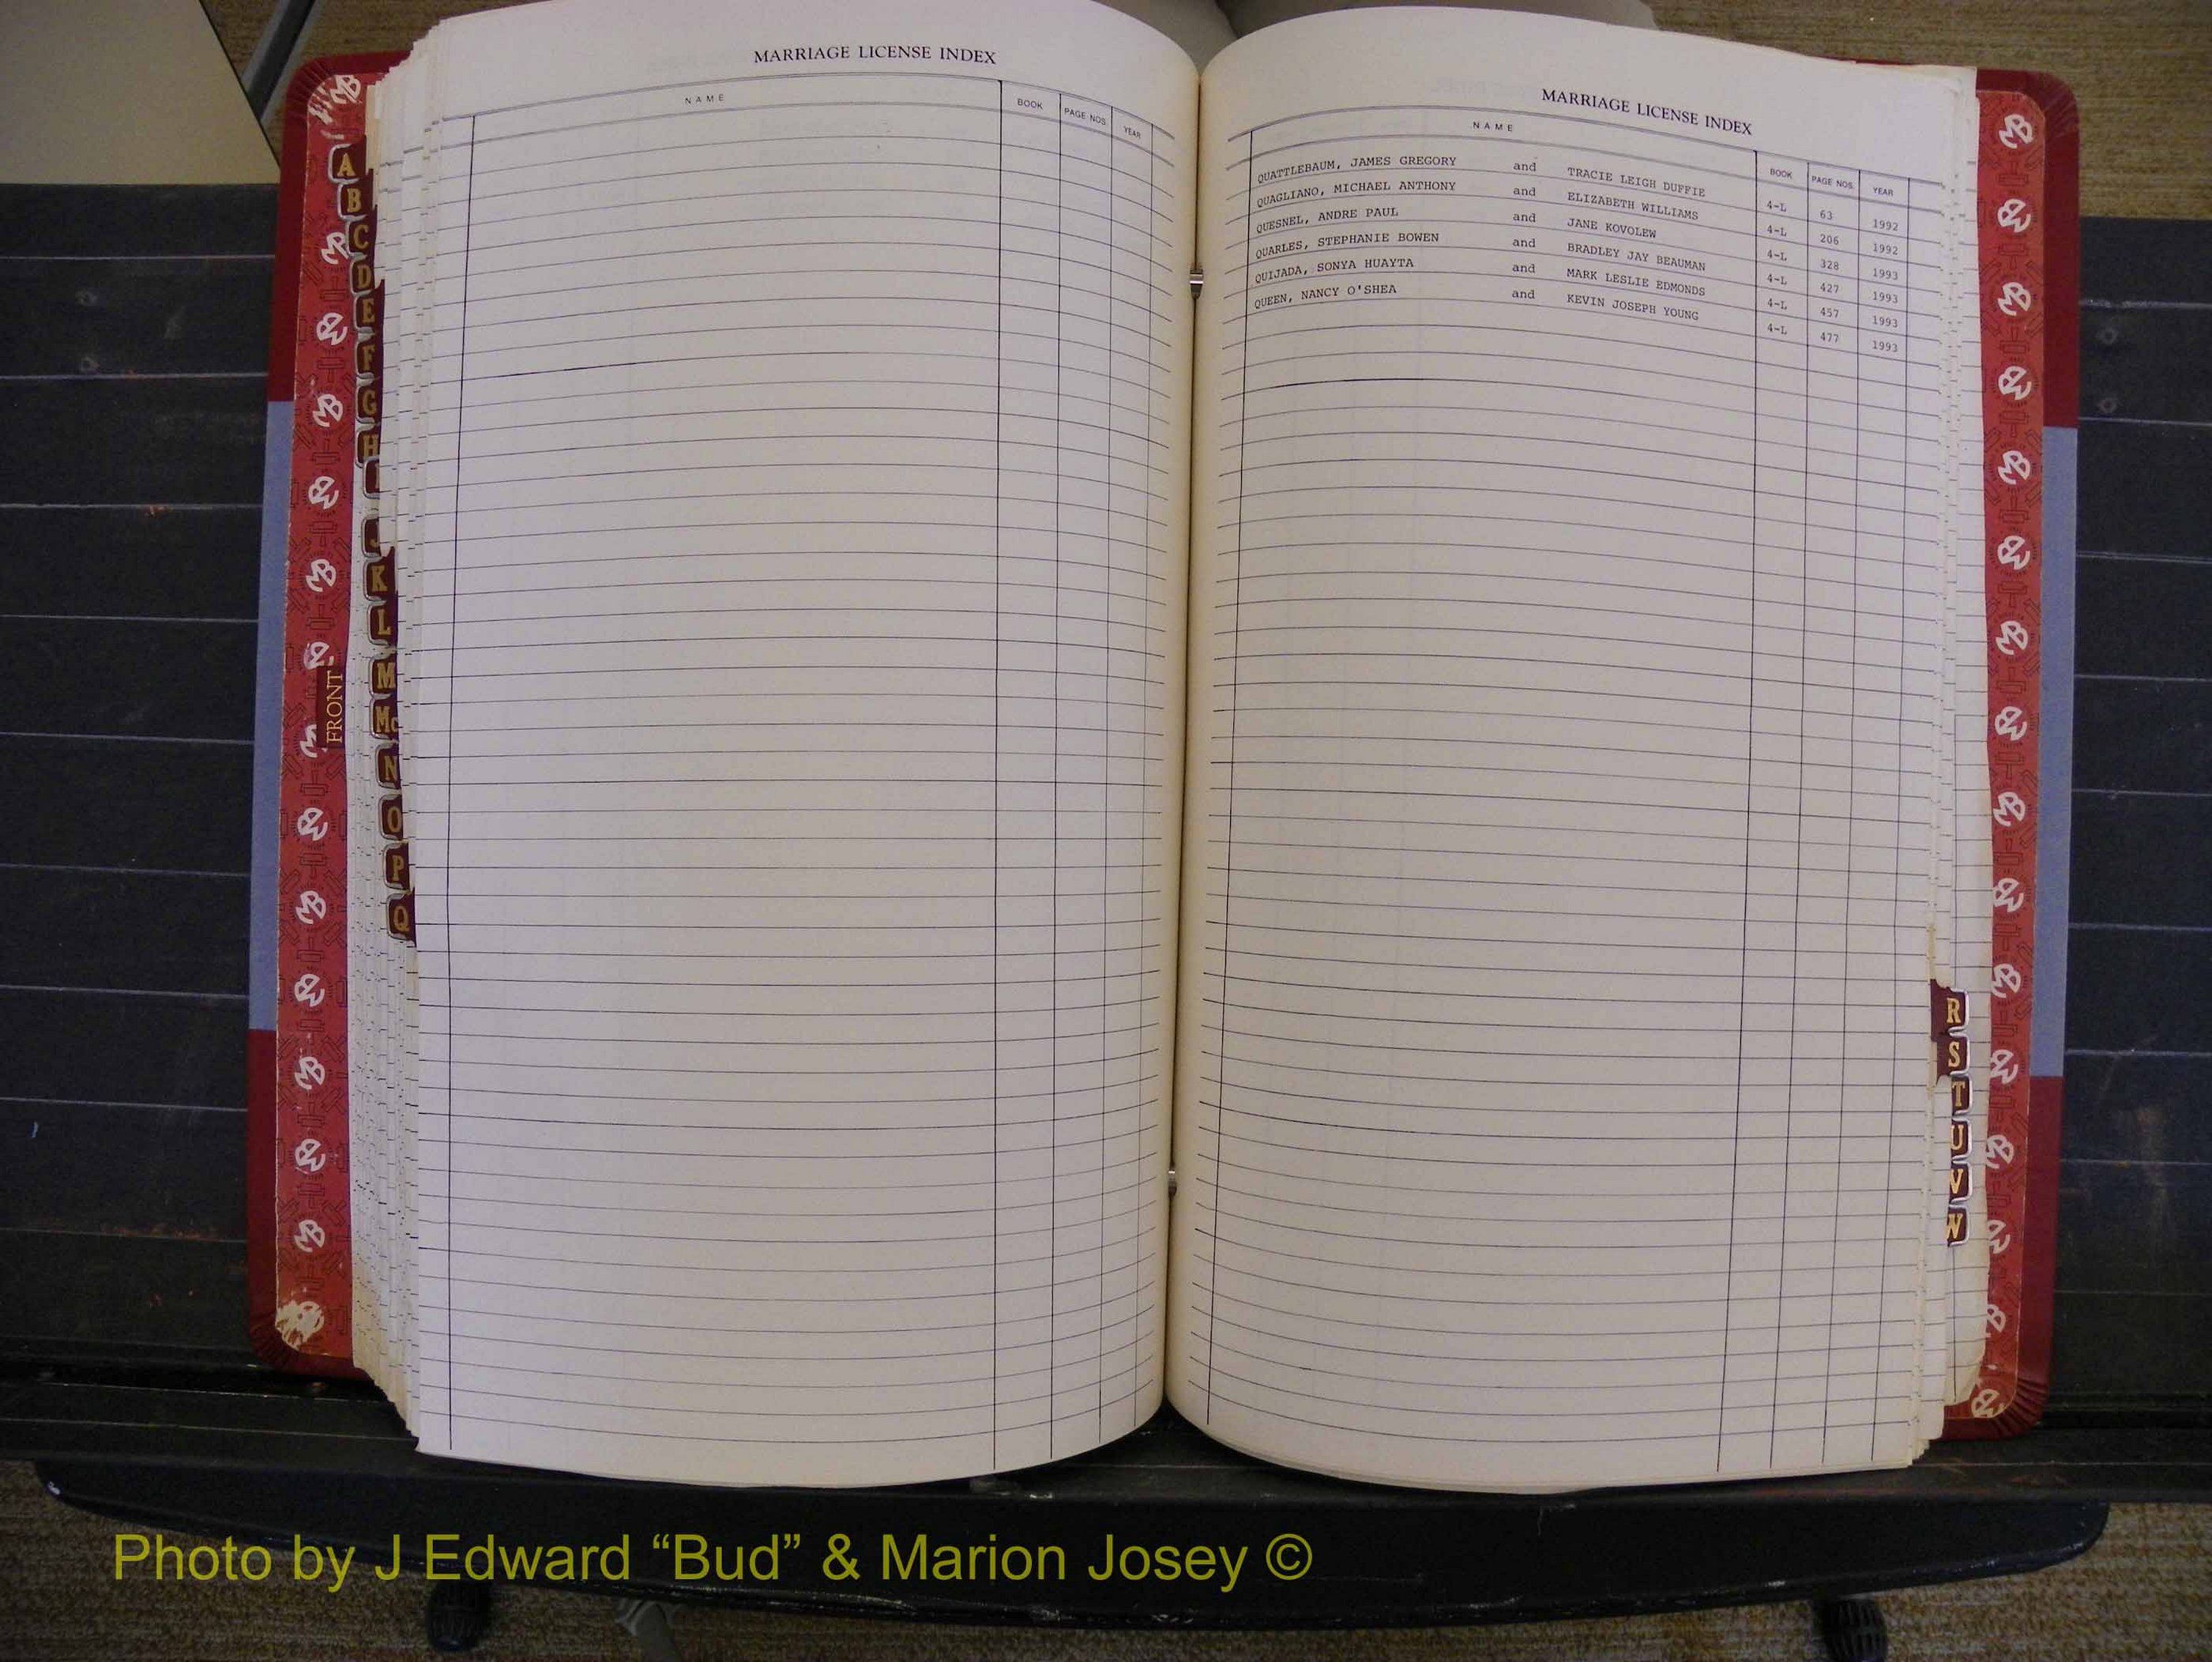 MARRIAGE LICENSE INDEX
NAME BOOK PAGE NOS. YEAR
MARRIAGE LICENSE INDEX
NAME BOOK PAGE NOS. YEAR
QUATTLEBAUM, JAMES GREGORY and TRACIE LEIGH DUFFIE 4-L 63 1992
QUAGLIANO, MICHAEL ANTHONY and ELIZABETH WILLIAMS 4-L 206 1992
QUESNEL, ANDRE PAUL and JANE KOVOLEW 4-L 328 1993
QUARLES, STEPHANIE BOWEN and BRADLEY JAY BEAUMAN 4-L 427 1993
QUIJADA, SONYA HUAYTA and MARK LESLIE EDMONDS 4-L 457 1993
QUEEN, NANCY O'SHEA and KEVIN JOSEPH YOUNG 4-L 477 1993
A
B
C
D
E
F
G
H
I
J
K
L
M
Mc
N
O
P
Q
FRONT
R
S
T
U
V
W
Photo by J Edward “Bud” & Marion Josey ©